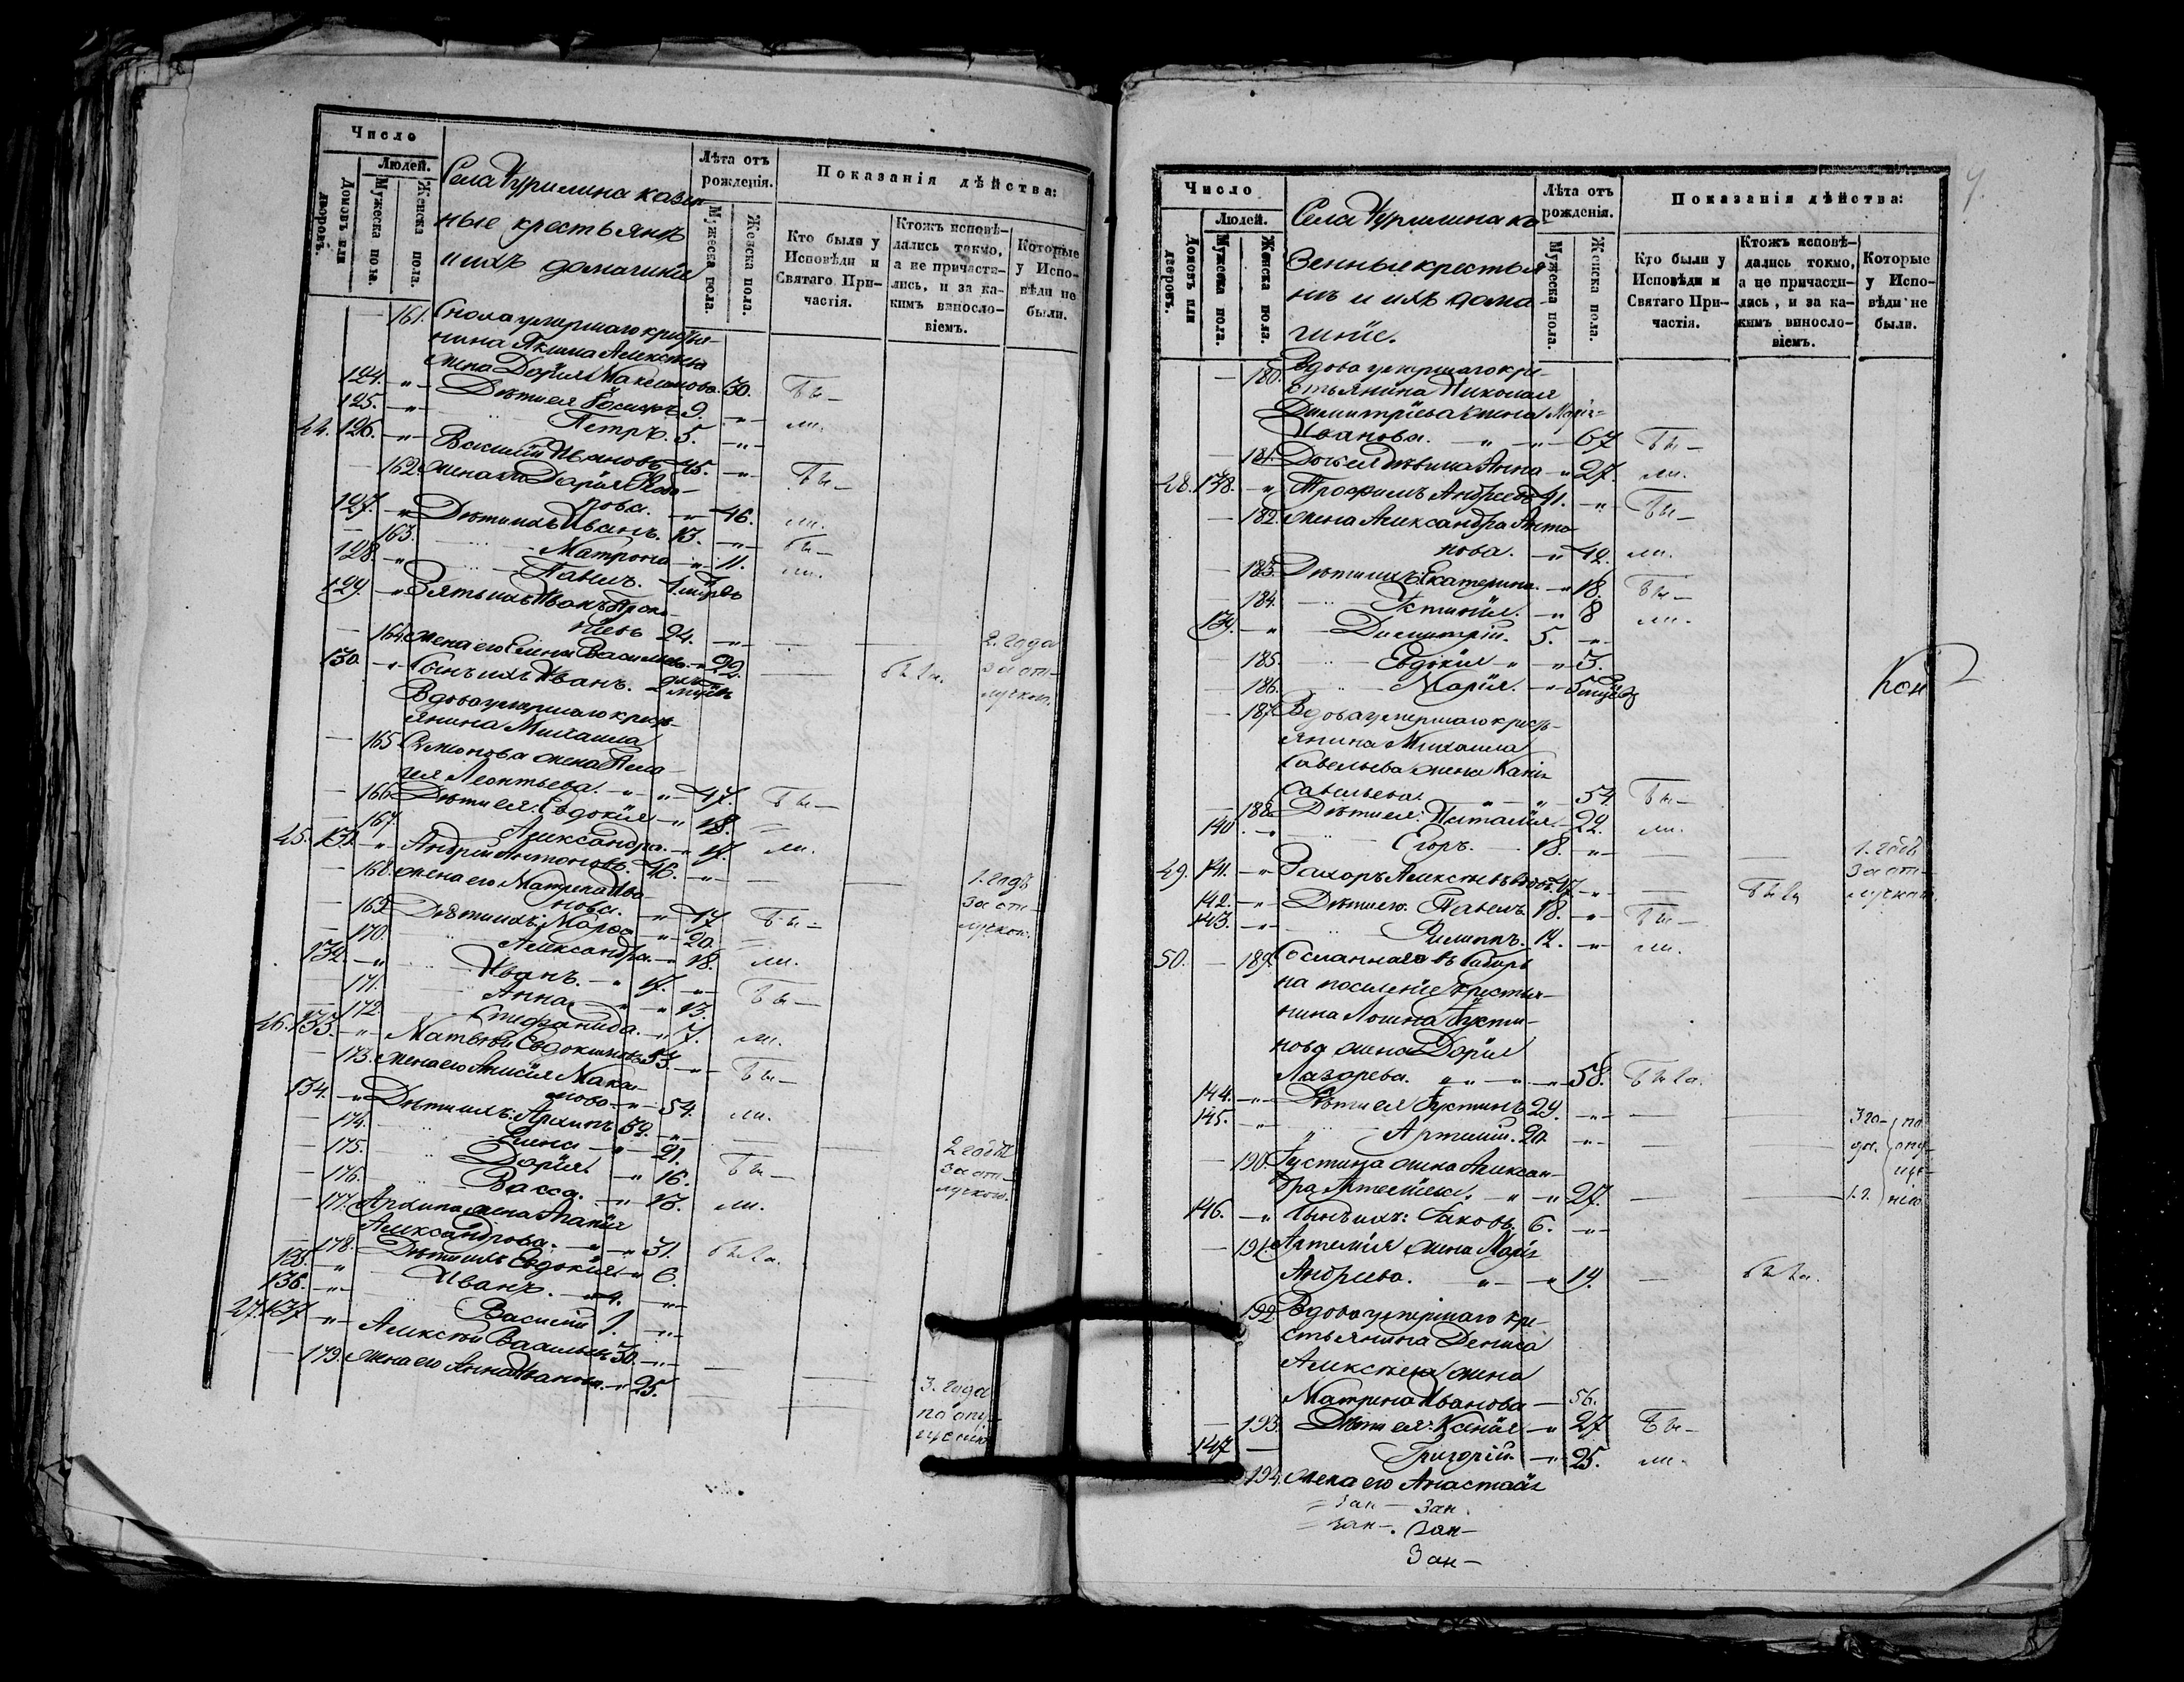 Число
Людей.
Домовъ или дворовъ.
Мужеска пола.
Женска пола.
Села Курилина казен-
ные крестьянъ
и ихъ домашніе
Лѣта отъ рожденія.
Мужеска пола.
Женска пола.
Показанія дѣйства:
Кто были у Исповѣди и Святаго Причастія.
Ктожъ исповѣдались токмо, а не причастились, и за какимъ винословіемъ.
Которые у Исповѣди не были.
161. Сноха умершаго крестья-
нина Якима Алексѣева
жена Дарія Максимова. 30. бы-
124. Дѣти ея 9. ли.
125. Петръ. 5.
44. 126. Василій Ивановъ 45. бы-
162. жена его Дарія
пова. 46. ли.
127. Дѣти ихъ Иванъ. 13. бы-
163. Матрона 11. ли.
128. Павелъ. 1.
129. Зять ихъ Иванъ Проко-
піевъ 24. 2. года
164. жена его Елена Васильева 22. были. за от-
130. Сынъ ихъ Иванъ. лучкою.
Вдова умершаго кресть-
янина Михаила
165 Симонова жена Пела-
гея Леонтьева. 47. бы-
166 Дѣти ея: Евдокія 18.
167. Александра. 17. ли.
45. 131. Андрей Антоновъ. 46. 1. годъ
168. жена его Матрена Ива- за от-
нова. 47 бы- лучкою.
169. Дѣти ихъ: Марфа 20.
170. Александра. 18. ли.
132. Иванъ. 17. бы-
171. Анна 13.
172. Стефанида. 7. ли.
46. 133. Матвѣй Евдокимовъ 53. бы-
173. жена его Анисія Мака-
рова 54. ли.
134. Дѣти ихъ: Архипъ 32. 2 года
174. Елена 21. бы- за от-
175. Дарія 16. лучкою.
176. Васса. 13. ли.
177. Архипа жена Агапія
Александрова. 31. была.
178. Дѣти ихъ Евдокія 6.
135. Иванъ. 4.
136. Василій 1.
47. 137 Алексѣй Васильевъ 30. 3. года
179. жена его Анна Иванова 25. по опу-
щенію
Число
Людей.
Домовъ или дворовъ.
Мужеска пола.
Женска пола.
Села Курилина ка-
зенные крестья-
нъ и ихъ дома-
шніе.
Лѣта отъ рожденія.
Мужеска пола.
Женска пола.
Показанія дѣйства:
Кто были у Исповѣди и Святаго Причастія.
Ктожъ исповѣдались токмо, а не причастились, и за какимъ винословіемъ.
Которые у Исповѣди не были.
180. Вдова умершаго кре-
стьянина Николая
Димитріева жена Марія
Иванова. 67 бы-
181. Дочь ея дѣвица Анна 27. ли.
48. 138. Трофимъ Андреевъ 41. бы-
182. жена Александра Анто-
нова. 42. ли.
183. Дѣти ихъ: Екатерина. 18. бы-
184. Устинія. 8 ли.
139. Димитрій. 5.
185. Евдокія 3.
186. Марія. 5
187. Вдова умершаго кресть-
янина Михаила
Савельева жена
Савельева. 54. бы-
188. Дѣти ея: Наталія 22. ли.
140. Егоръ. 18. 1. годъ
49. 141. Захаръ Алексѣевъ вдовъ 47. былъ за от-
142. Дѣти его: Павелъ 18. бы- лучкою.
143. Филиппъ. 12. ли.
50. 189. Сосланнаго въ Сибирь
на поселеніе крестья-
нина Логина Густи-
нова жена Дарія
Лазарева. 58. была.
144. Дѣти ея Густинъ 29. 3 го- по
145. Артемій. 20. да. опу-
190. Густина жена Алексан- ще-
дра Артемьева. 27. 1. г. нію
146. Сынъ ихъ: Іаковъ. 6.
191. Артемія жена Марія
Андреева. 19. была.
192. Вдова умершаго кре-
стьянина Дениса
Алексѣева жена
Матрена Иванова 56.
193. Дѣти ея: Ксенія 27 бы-
147 Григорій. 25. ли.
194. Жена его Анастасія
Зан- Зан.
Зан-. Зан-
Зан-